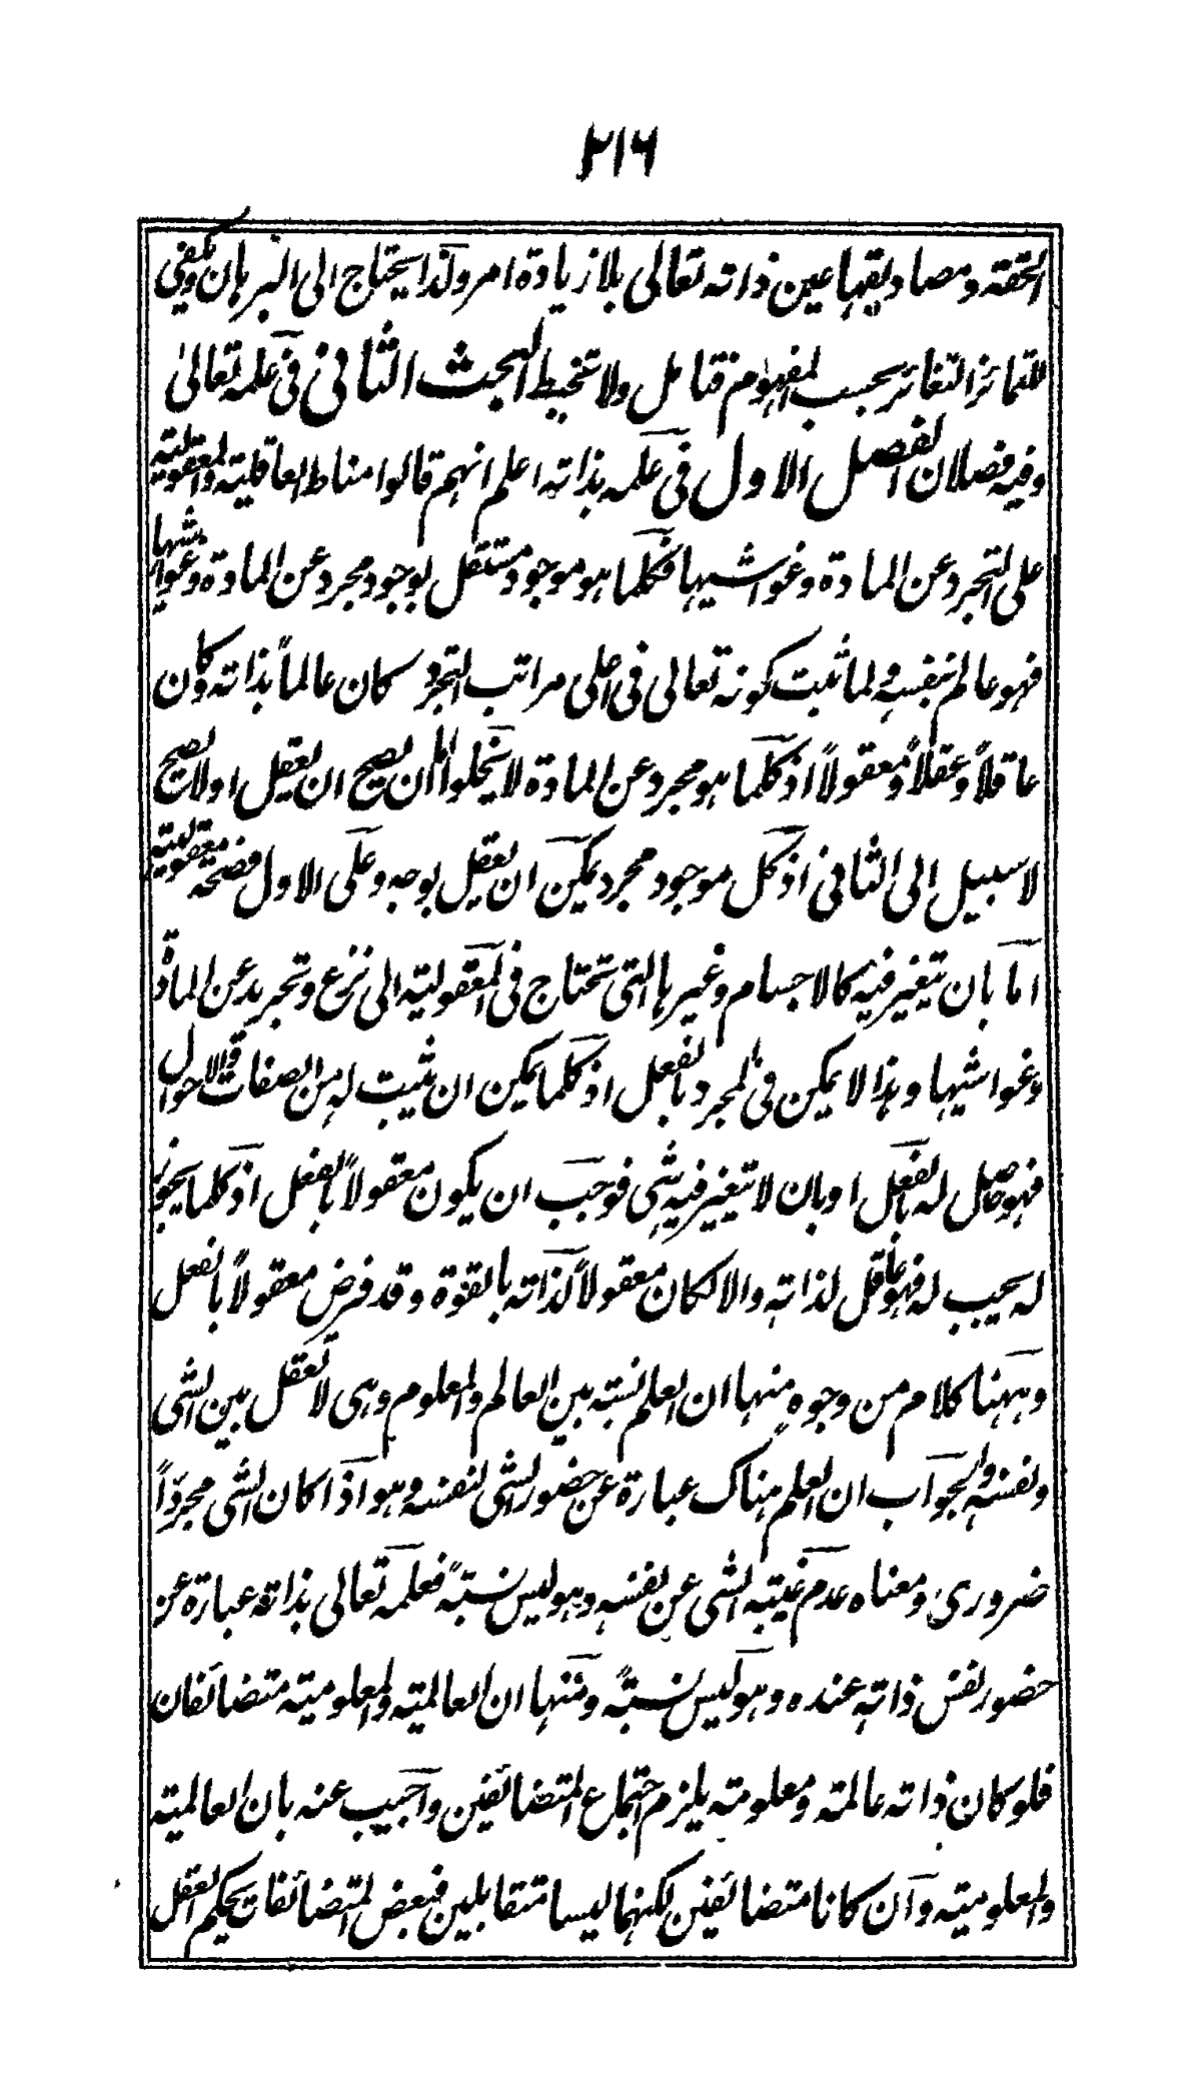 ٢١٦
الحقة ومصاديقها عين ذاته تعالى بلا زيادة امر ولذا يحتاج الى البرهان ويكفي
للتمائز التغائر بحسب المفهوم فتامل ولا تخبط البحث الثاني في علمه تعالىٰ
وفيه فصلان الفصل الاول في علمه بذاته اعلم انهم قالوا مناط العاقلية والمعقولية
على التجرد عن المادة وغواشيها فكلما هو موجود مستقل بوجود مجرد عن المادة وغواشيها
فهو عالم بنفسه ولما ثبت كونه تعالى في اعلى مراتب التجرد كان عالماً بذاته وكان
عاقلاً وعقلاً ومعقولاً اذ كلما هو مجرد عن المادة لا يخلوا اما ان يصح ان يعقل او لا يصح
لا سبيل الى الثاني اذ كل موجود مجرد يمكن ان يعقل بوجه وعلى الاول فصحة معقولية
اما بان يتغير فيه كالاجسام وغيرها التي تحتاج في المعقولية الى نزع وتجريد عن المادة
وغواشيها وهذا لا يمكن في المجرد بالفعل اذ كلما يمكن ان يثبت له من الصفات والاحوال
فهو حاصل له بالفعل او بان لا يتغير فيه شي فوجب ان يكون معقولاً بالفعل اذ كلما يجوز
له يجب له فهو عاقل لذاته والا لكان معقولاً لذاته بالقوة وقد فرض معقولاً بالفعل
وههنا كلام من وجوه منها ان العلم نسبة بين العالم والمعلوم وهي لا تعقل بين الشي
ونفسه والجواب ان العلم هناك عبارة عن حضور الشي لنفسه وهو اذا كان الشي مجرّداً
ضروري ومعناه عدم غيبة الشي عن نفسه وهو ليس نسبةً فعلمه تعالى بذاته عبارة عن
حضور نفس ذاته عنده وهو ليس نسبةً ومنها ان العالمية والمعلومية متضائفان
فلو كان ذاته عالمة ومعلومة يلزم اجتماع المتضائفين واجيب عنه بان العالمية
والمعلومية وان كانا متضائفين لكنهما ليسا متقابلين فبعض المتضائفات يحكم العقل